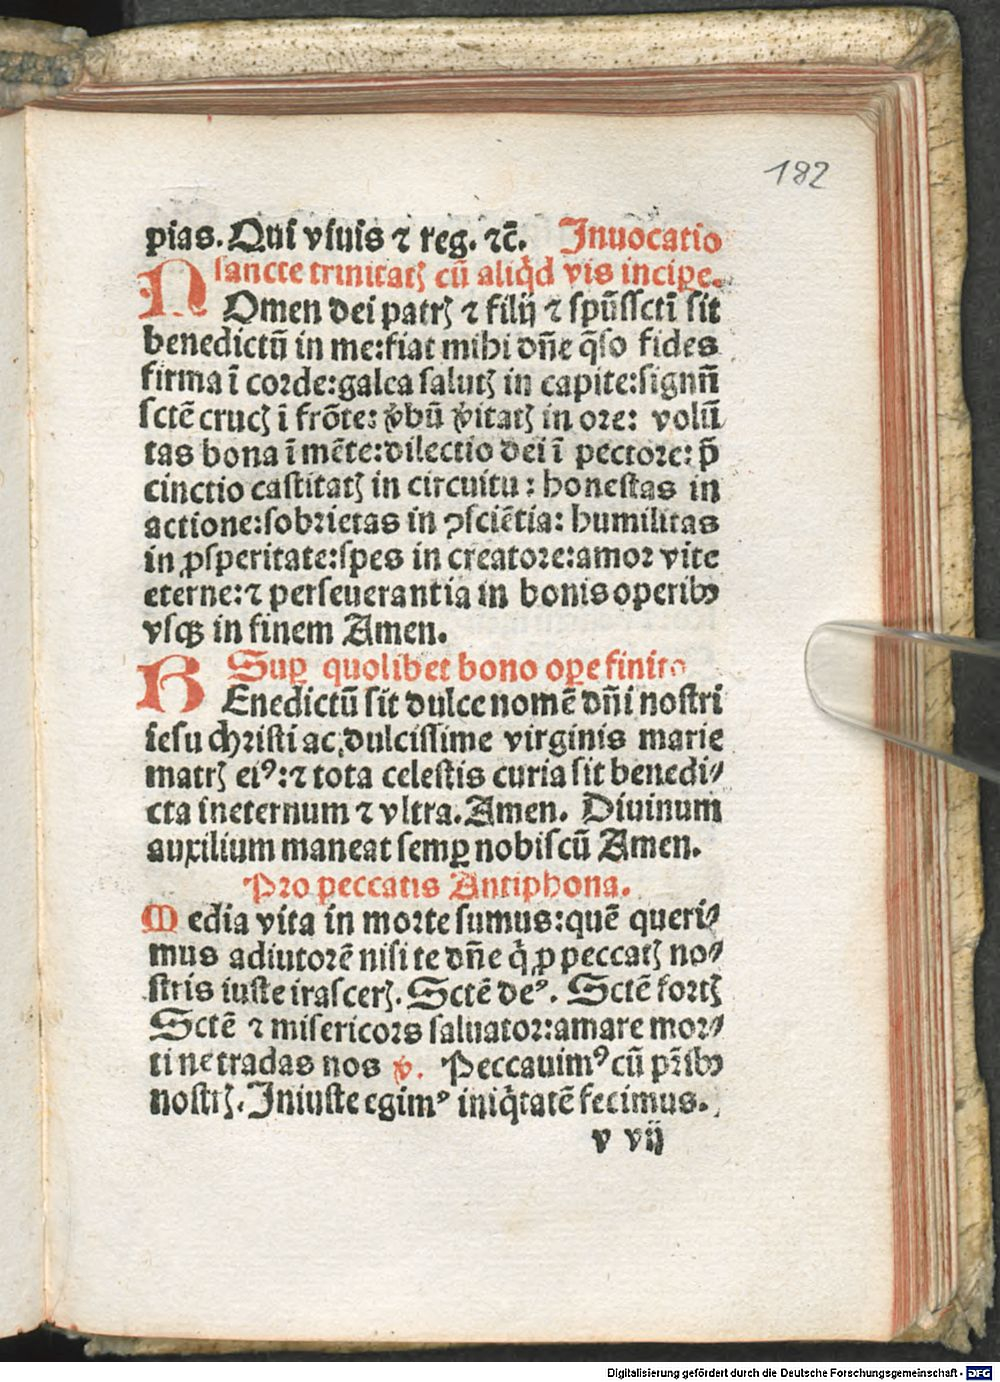 182
pias. Qui viuis ⁊ reg. ⁊c̄. Inuocatio
sancte trinitatꝭ cū aliq̇d vis incipe.
NOmen dei patrꝭ ⁊ filij ⁊ spūssctī sit
benedictū in me:fiat mihi dn̄e q̄so fides
firma ī corde:galea salutꝭ in capite:signū
sctē crucꝭ ī frōte: v̾bū v̾itatꝭ in ore: volū
tas bona ī mēte:dilectio dei ī pectore: p̄
cinctio castitatꝭ in circuitu: honestas in
actione:sobrietas in ꝯsciētia: humilitas
in ꝓsperitate:spes in creatore:amor vite
eterne:⁊ perseuerantia in bonis operibꝰ
vsqꝫ in finem Amen.
Suꝑ quolibet bono oꝑe finito
BEnedictū sit dulce nomē dn̄i nostri
iesu christi ac dulcissime virginis marie
matrꝭ eiꝰ:⁊ tota celestis curia sit benedi⸗
cta ineternum ⁊ vltra. Amen. Diuinum
auxilium maneat semꝑ nobiscū Amen.
Pro peccatis Antiphona.
Media vita in morte sumus:quē queri⸗
mus adiutorē nisi te dn̄e q̇ ꝓ peccatꝭ no⸗
stris iuste irascerꝭ. Sctē deꝰ. Sctē fortꝭ
Sctē ⁊ misericors saluator:amare mor⸗
ti ne tradas nos ℣. Peccauimꝰ cū pr̄ibꝰ
nostrꝭ. Iniuste egimꝰ iniq̇tatē fecimus.
v vij
Digitalisierung gefördert durch die Deutsche Forschungsgemeinschaft - DFG